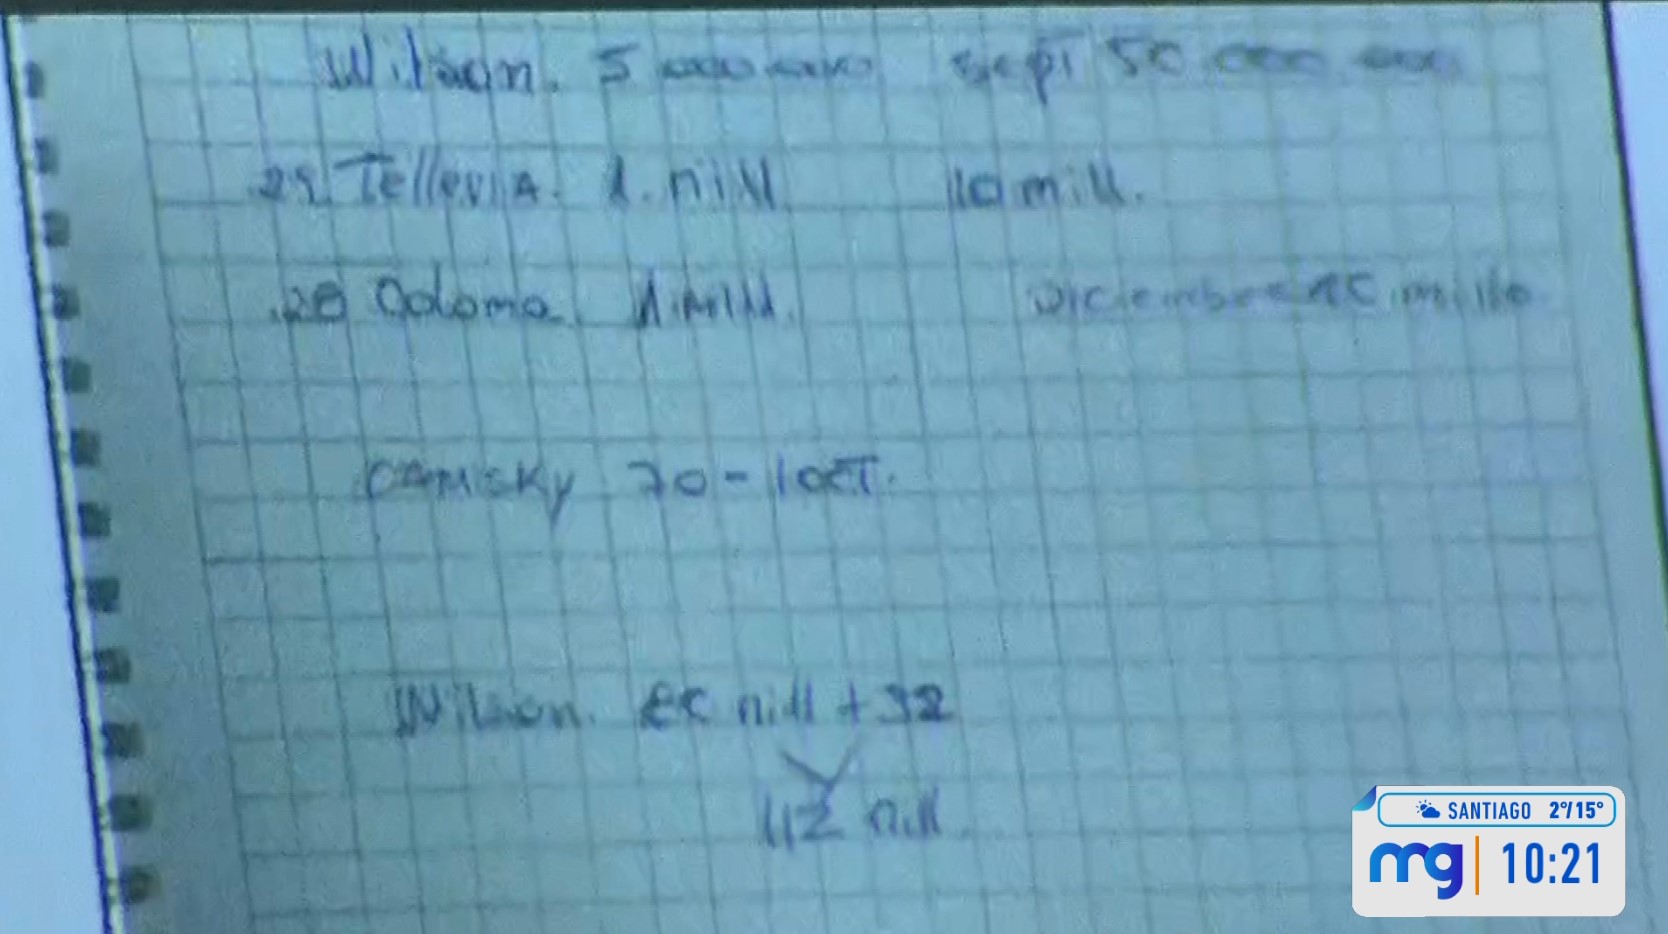 Wilson. 5 000 000 sept 50 000 000
29. Telleria. 1. nill 10 mill.
28 Coloma 1. Mill. Diciembre 15 millo
CAMSKY 70 - 1 OCT.
Wilson. nill + 32
112 nill
SANTIAGO 2°/15°
mg 10:21